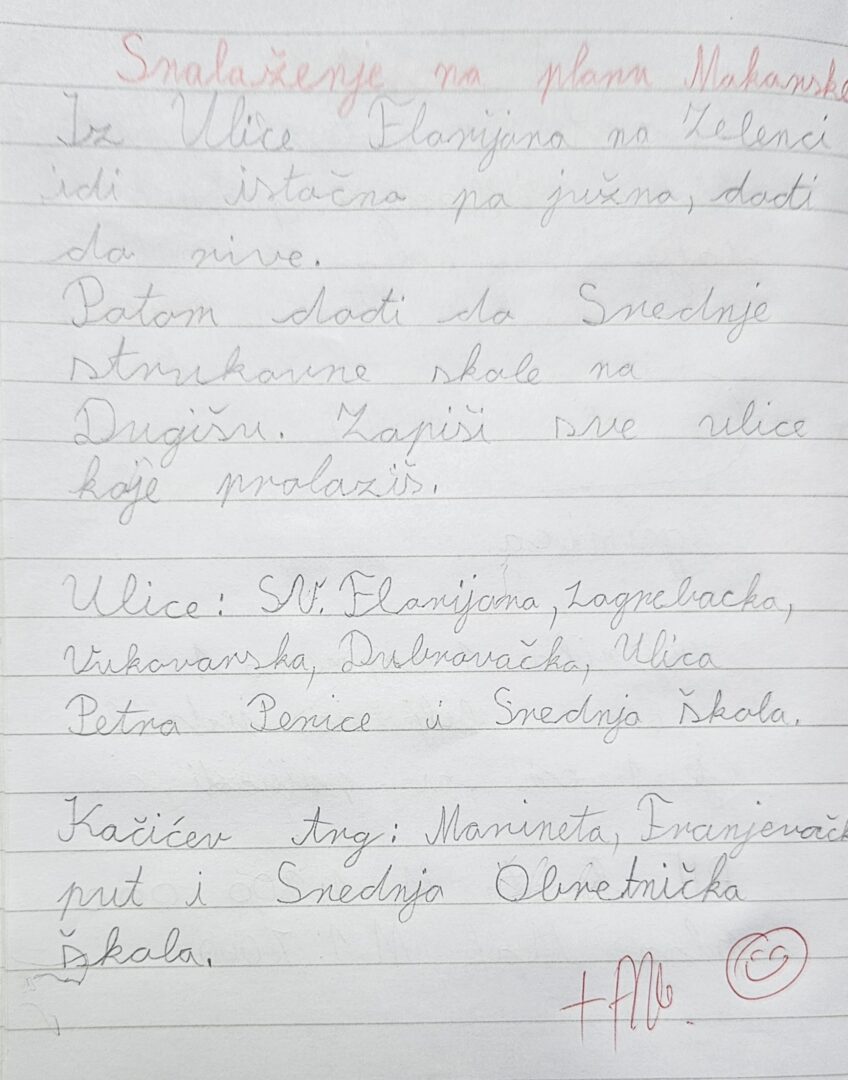 Snalaženje na planu Makarske
Iz Ulice Florijana na Zelenci
idi istočno pa južno, dođi
do rive.
Potom dođi do Srednje
strukovne škole na
Dugišu. Zapiši sve ulice
koje prolaziš.
Ulice: SV. Florijana, Zagrebačka,
Vukovarska, Dubrovačka, Ulica
Petra Perice i Srednja škola.
Kačićev trg: Marineta, Franjevačk
put i Srednja Obrtnička
škola.